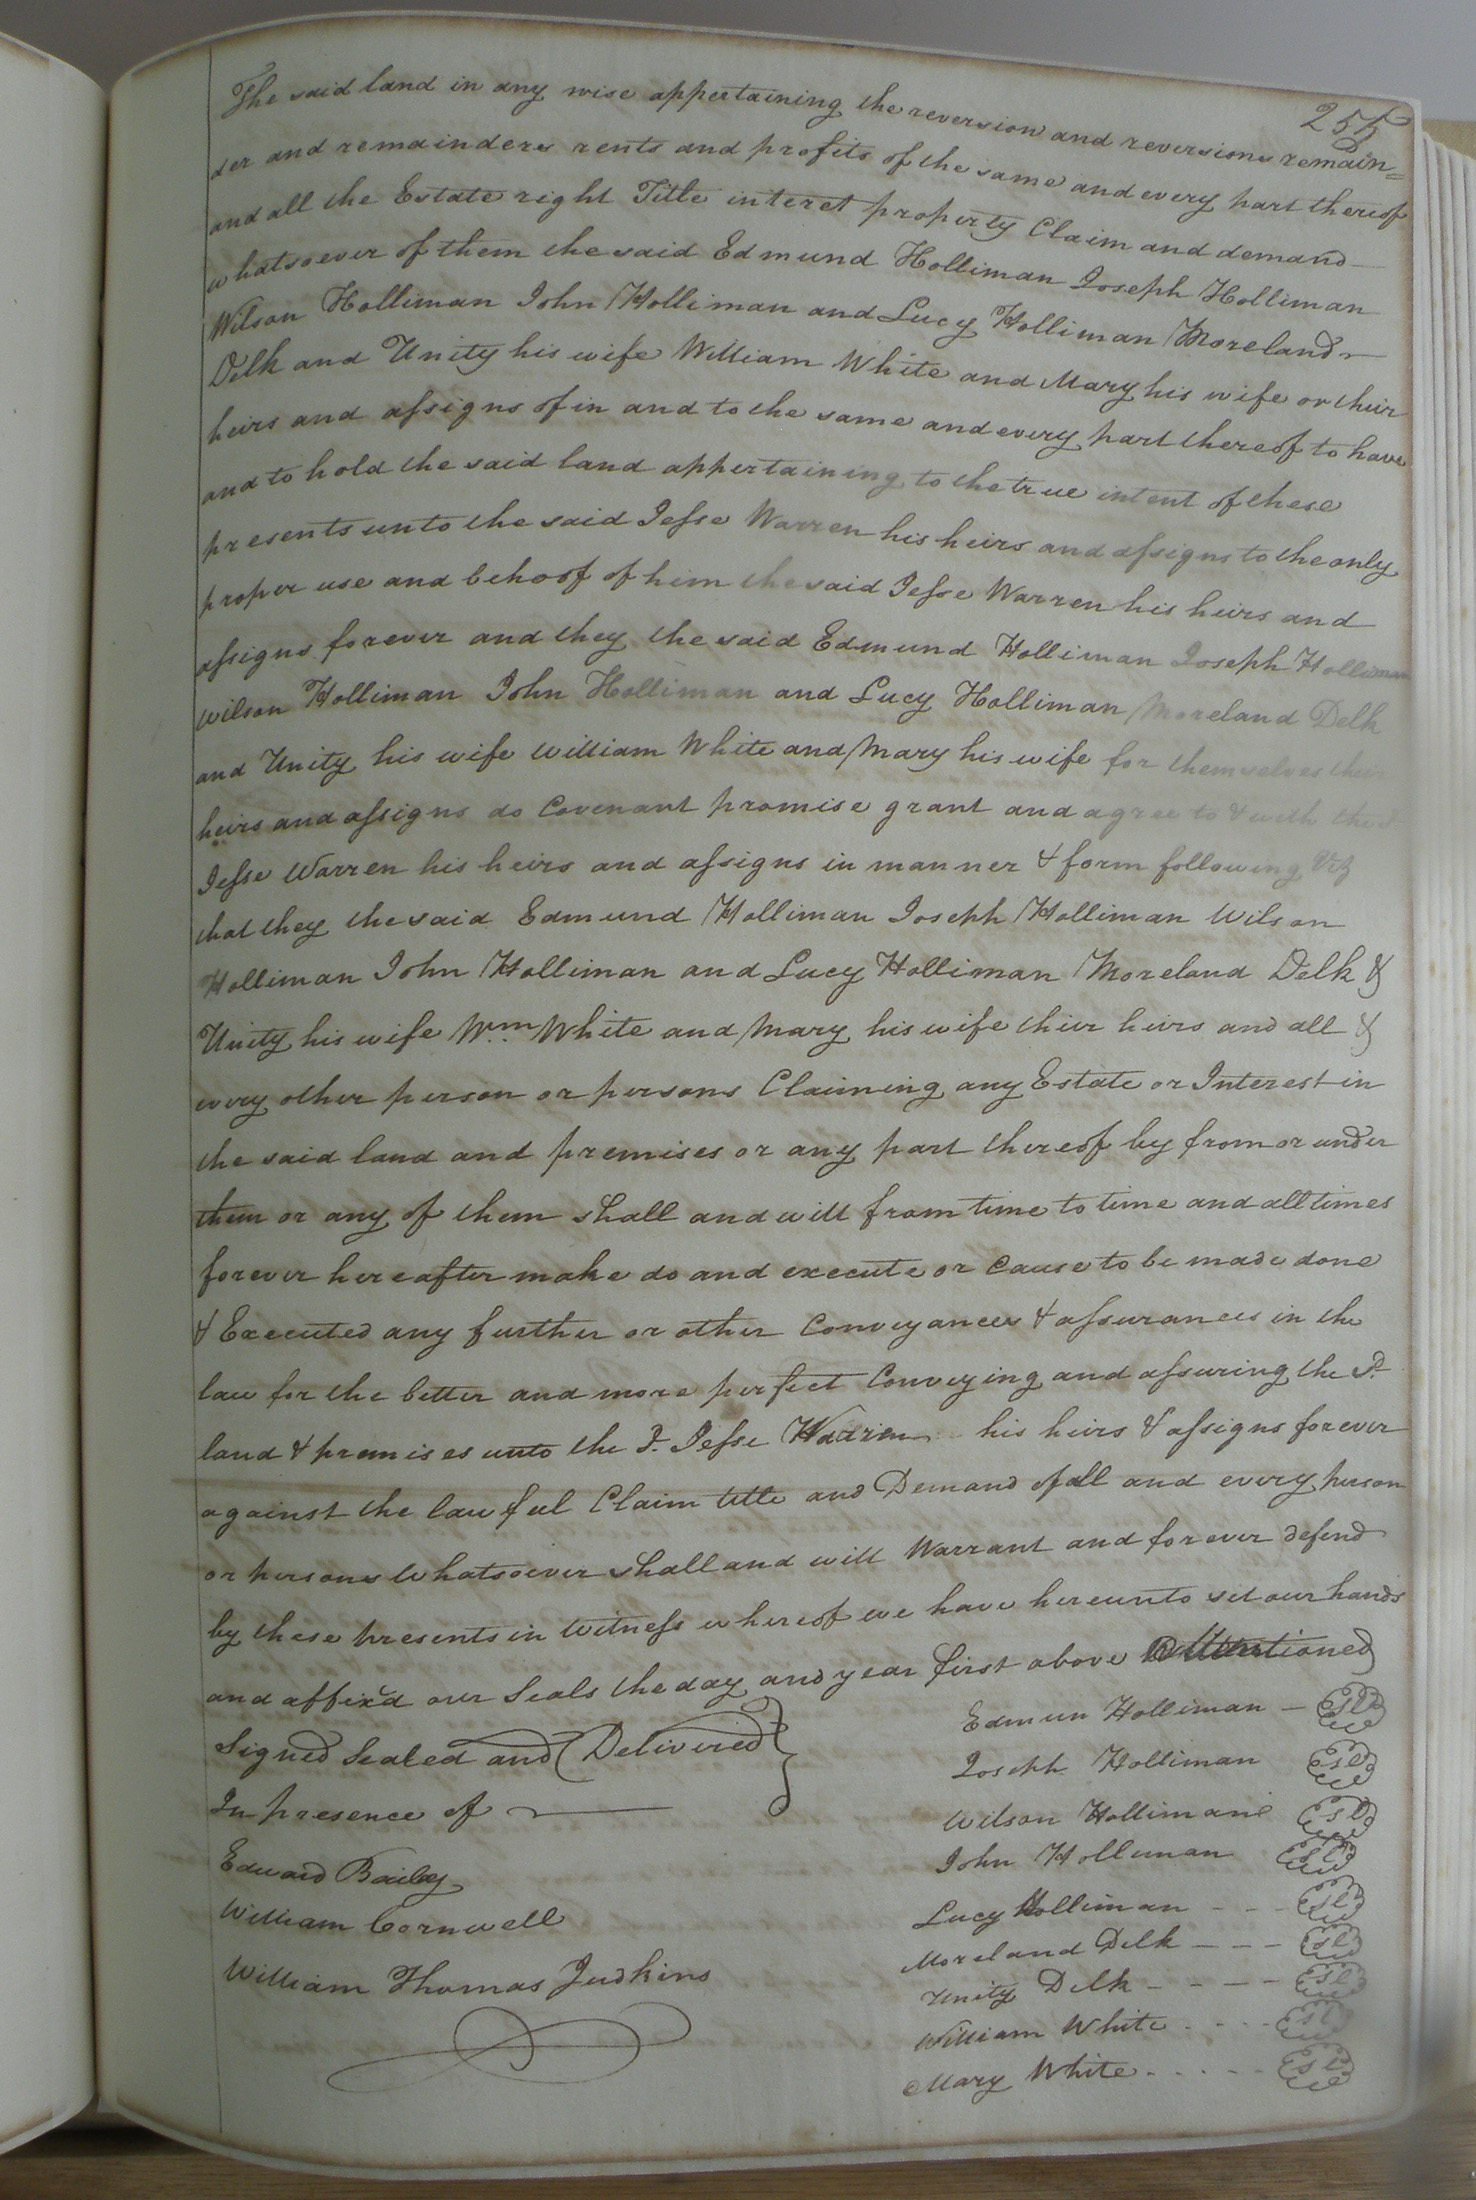 255
The said land in any wise appertaining the reversion and reversions remain=
der and remainders rents and profits of the same and every part thereof
and all the Estate right Title interet property Claim and demand
whatsoever of them the said Edmund Holliman Joseph Holliman
Wilson Holliman John Holliman and Lucy Holliman Moreland
Delk and Unity his wife William White and Mary his wife or their
heirs and assigns of in and to the same and every part thereof to have
and to hold the said land appertaining to the true intent of these
presents unto the said Jesse Warren his heirs and assigns to the only
proper use and behoof of him the said Jesse Warren his heirs and
assigns forever and they the said Edmund Holliman Joseph Holliman
Wilson Holliman John Holliman and Lucy Holliman Moreland Delk
and Unity his wife William White and Mary his wife for themselves their
heirs and assigns do Covenant promise grant and agree to & with the
Jesse Warren his heirs and assigns in manner & form following Viz
that they the said Edmund Holliman Joseph Holliman Wilson
Holliman John Holliman and Lucy Holliman Moreland Delk &
Unity his wife Wm White and Mary his wife their heirs and all &
every other person or persons Claiming any Estate or Interest in
the said land and premises or any part thereof by from or under
them or any of them shall and will from time to time and all times
forever hereafter make do and execute or Cause to be made done
& Executed any further or other Conveyances & assurances in the
law for the better and more perfect Conveying and assuring the Sd
land & premises unto the Sd Jesse Warren his heirs & assigns forever
against the lawful Claim title and Demand of all and every person
or persons Whatsoever shall and will Warrant and forever defend
by these presents in Witness whereof we have hereunto set our hands
and affix'd our Seals the day and year first above Mentioned
Signed Sealed and Delivered
In presence of
Edward Bailey
William Cornwell
William Thomas Judkins
Edmun Holliman — Sl
Joseph Holliman Sl
Wilson Holliman Sl
John Holliman Sl
Lucy Holliman - - - Sl
Moreland Delk - - - Sl
Unity Delk - - - - Sl
William White - - - - Sl
Mary White - - - - - Sl